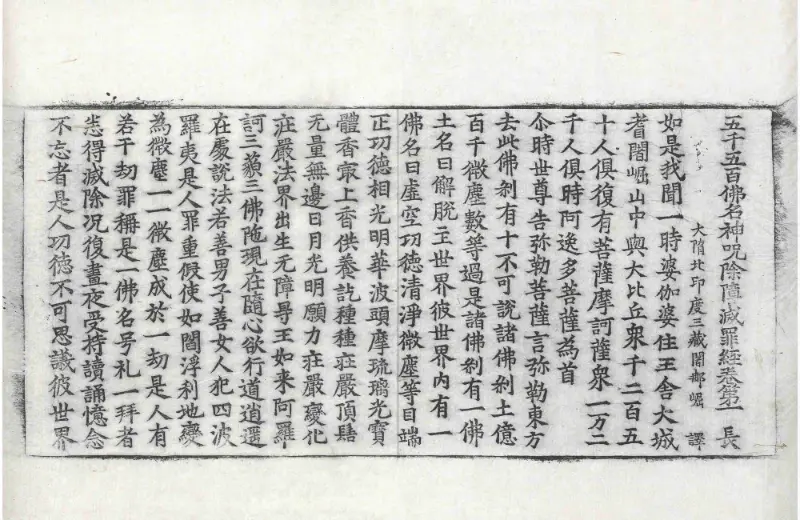 五千五百佛名神呪除障滅罪經卷第一 長
大隋北印度三藏闍那崛 譯
如是我聞一時婆伽婆住王舍大城
耆闍崛山中與大比丘衆千二百五
十人俱復有菩薩摩訶薩衆一万二
千人俱時阿逸多菩薩為首
尒時世尊告弥勒菩薩言弥勒東方
去此佛剎有十不可說諸佛剎土億
百千微塵數等過是諸佛剎有一佛
土名曰解脫主世界彼世界內有一
佛名曰虛空功德清淨微塵等目端
正功德相光明華波頭摩琉璃光寶
體香最上香供養訖種種莊嚴頂髻
无量無邊日月光明願力莊嚴變化
莊嚴法界出生无障㝵王如来阿羅
訶三藐三佛陁現在隨心欲行道逍遥
在處說法若善男子善女人犯四波
羅夷是人罪重假使如閻浮利地變
為微塵一一微塵成於一劫是人有
若干劫罪稱是一佛名号礼一拜者
悉得滅除况復晝夜受持讀誦憶念
不忘者是人功德不可思議彼世界